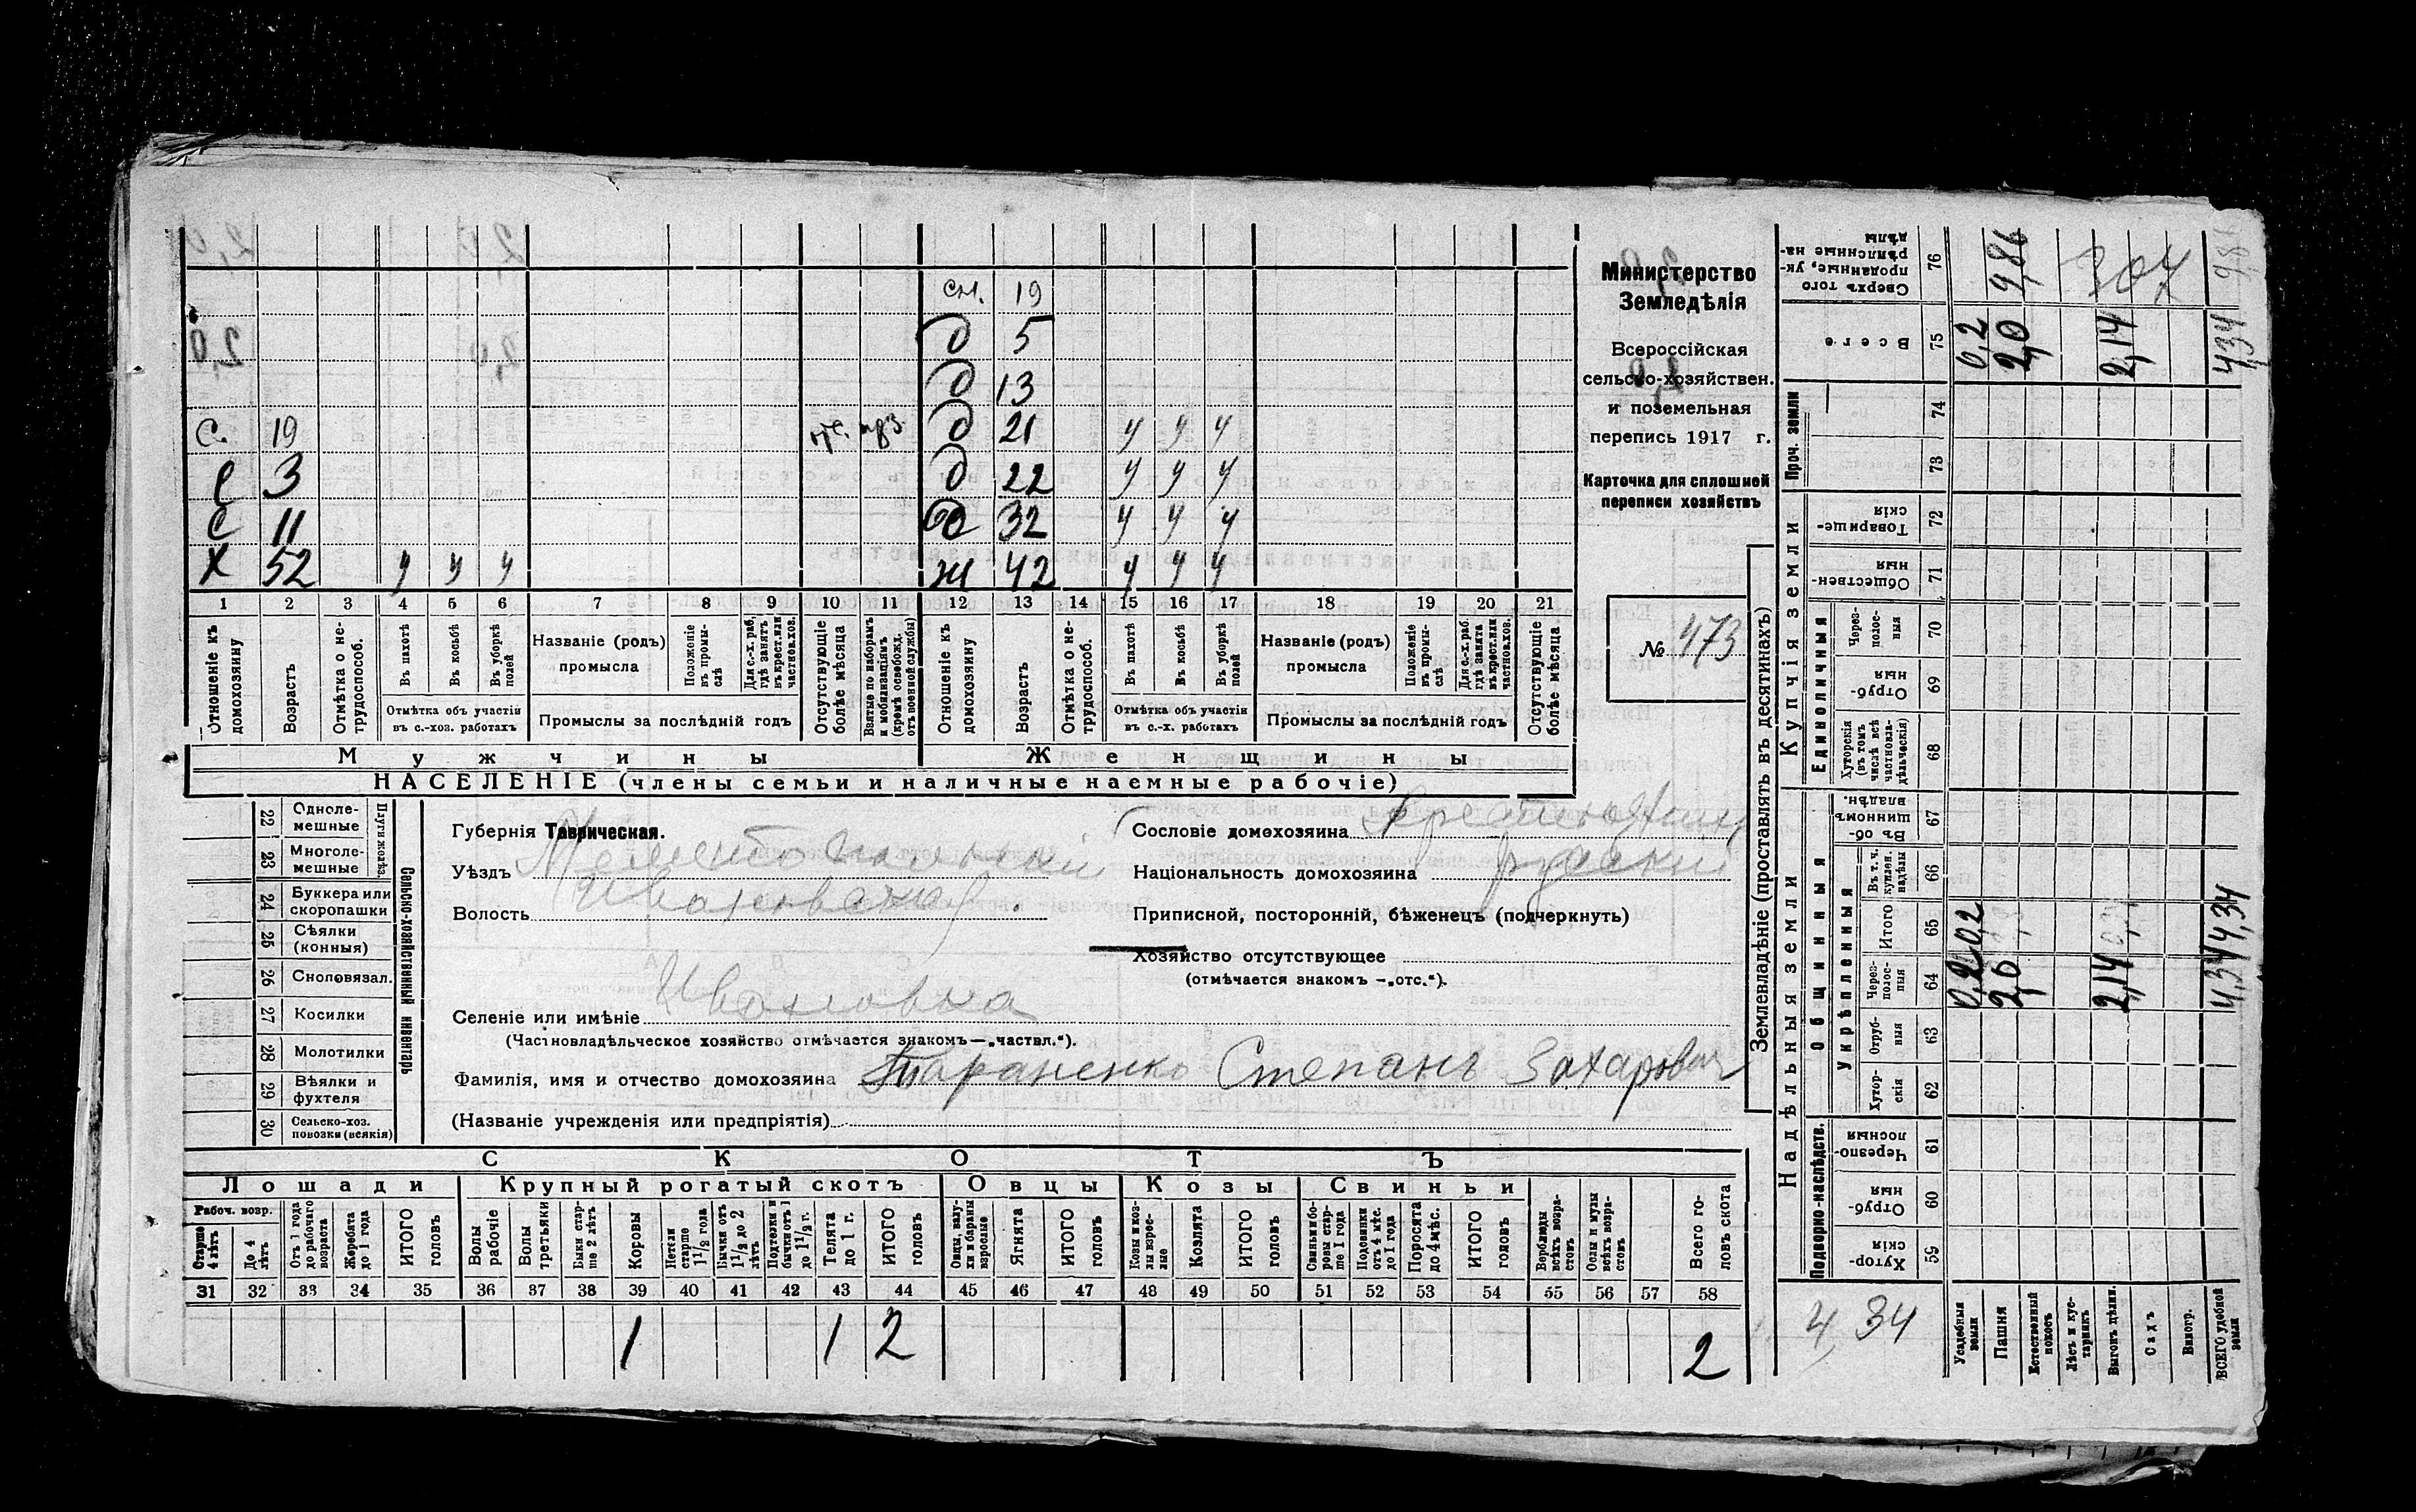 см. 19
д 5
д 13
С. 19 д 21 у у у
с 3 д 22 у у у
с 11 32 у у у
Х 52 у у у ж 42 у у у
1 2 3 4 5 6 7 8 9 10 11 12 13 14 15 16 17 18 19 20 21
Отношеніе къ домохозяину
Возрастъ
Отмѣтка о нетрудоспособ.
Въ пахотѣ
Въ косьбѣ
Въ уборкѣ полей
Отмѣтка объ участіи
въ с.-хоз. работахъ
Названіе (родъ)
промысла
Положеніе въ промыслѣ
Для с.-х. раб, гдѣ занятъ въ крест. или частнов. хоз.
Промыслы за послѣдній годъ
Отсутствующіе болѣе мѣсяца
Взятые по наборамъ и мобилизаціямъ (кромѣ освобожд. отъ военной службы)
Отношеніе къ домохозяину
Возрастъ
Отмѣтка о нетрудоспособ.
Въ пахотѣ
Въ косьбѣ
Въ уборкѣ полей
Отмѣтка объ участіи
въ с.-х. работахъ
Названіе (родъ)
промысла
Положеніе въ промыслѣ
Для с.-х. раб. гдѣ занята въ крест. или частнов. хоз.
Промыслы за послѣдній годъ
Отсутствующіе болѣе мѣсяца
Мужчины Женщины
НАСЕЛЕНІЕ (члены семьи и наличные наемные рабочіе)
Министерство
Земледѣлія
Всероссійская
сельско-хозяйствен.
и поземельная
перепись 1917 г.
Карточка для сплошней
переписи хозяйствъ
№ 473
22 Однолемешные
23 Многолемешные
Плуги желѣз.
24 Буккера или скоропашки
25 Сѣялки (конныя)
26 Сноповязал.
27 Косилки
28 Молотилки
29 Вѣялки и фухтеля
30 Сельско-хоз. повозки (всякія)
Сельско-хозяйственный инвентарь
Губернія Таврическая.
Уѣздъ Мелитопольскій
Волость Ивановская
Селеніе или имѣніе Ивановка
(Частновладѣльческое хозяйство отмѣчается знакомъ—„частвл.“).
Фамилія, имя и отчество домохозяина Тараненко Степанъ Захарович
(Названіе учрежденія или предпріятія)
Сословіе домохозяина
Національность домохозяина русскій
Приписной, посторонній, бѣженецъ (подчеркнуть)
Хозяйство отсутствующее
(отмѣчается знакомъ —„отс.“).
СКОТЪ
Лошади Крупный рогатый скотъ Овцы Козы Свиньи
Рабоч. возр.
Старше 4 лѣтъ
До 4 лѣтъ
Отъ 1 года до рабочаго возраста
Жеребята до 1 года
ИТОГО головъ
Волы рабочіе
Волы третьяки
Быки старше 2 лѣтъ
Коровы
Нетели старше 1 1/2 года
Бычки отъ 1 1/2 до 2 лѣтъ
Подтелки и бычки отъ 1 до 1 1/2 г.
Телята до 1 г.
ИТОГО головъ
Овцы, валухи и бараны взрослые
Ягнята
ИТОГО головъ
Козы и козлы взрослые
Козлята
ИТОГО головъ
Свиньи и боровы старше 1 года
Подсвинки отъ 4 мѣс. до 1 года
Поросята до 4 мѣс.
ИТОГО головъ
Верблюды всѣхъ возрастовъ
Ослы и мулы всѣхъ возрастовъ
Всего головъ скота
31 32 33 34 35 36 37 38 39 40 41 42 43 44 45 46 47 48 49 50 51 52 53 54 55 56 57 58
1 1 2 2
Землевладѣніе (проставлять въ десятинахъ)
Надѣльныя земли
Купчія земли
Проч. земли
Подворно-наслѣдств.
Общинныя
Укрѣпленныя
Единоличныя
Сверхъ того проданные, укрѣпленные надѣлы 76 9,86 98
Всего 75 0,2 2,0 2,14 4,34
74
73
Товарищескія 72
Общественныя 71
Черезполосныя 70
Отрубныя 69
Хуторскія (въ томъ числѣ всѣ частновладѣльческія) 68
Въ общинномъ владѣн. 67
Въ т. ч. куплен. надѣлы 66
Итого 65 0,2 4,34
Черезполосныя 64 0,2 2,0 2,14 4,34
Отрубныя 63
Хуторскія 62
Черезполосныя 61
Отрубныя 60
Хуторскія 59
4,34
Усадебныя земли
Пашня
Естественный покосъ
Лѣсъ и кустарникъ
Выгонъ цѣлин.
Садъ
Виногр.
ВСЕГО удобной земли